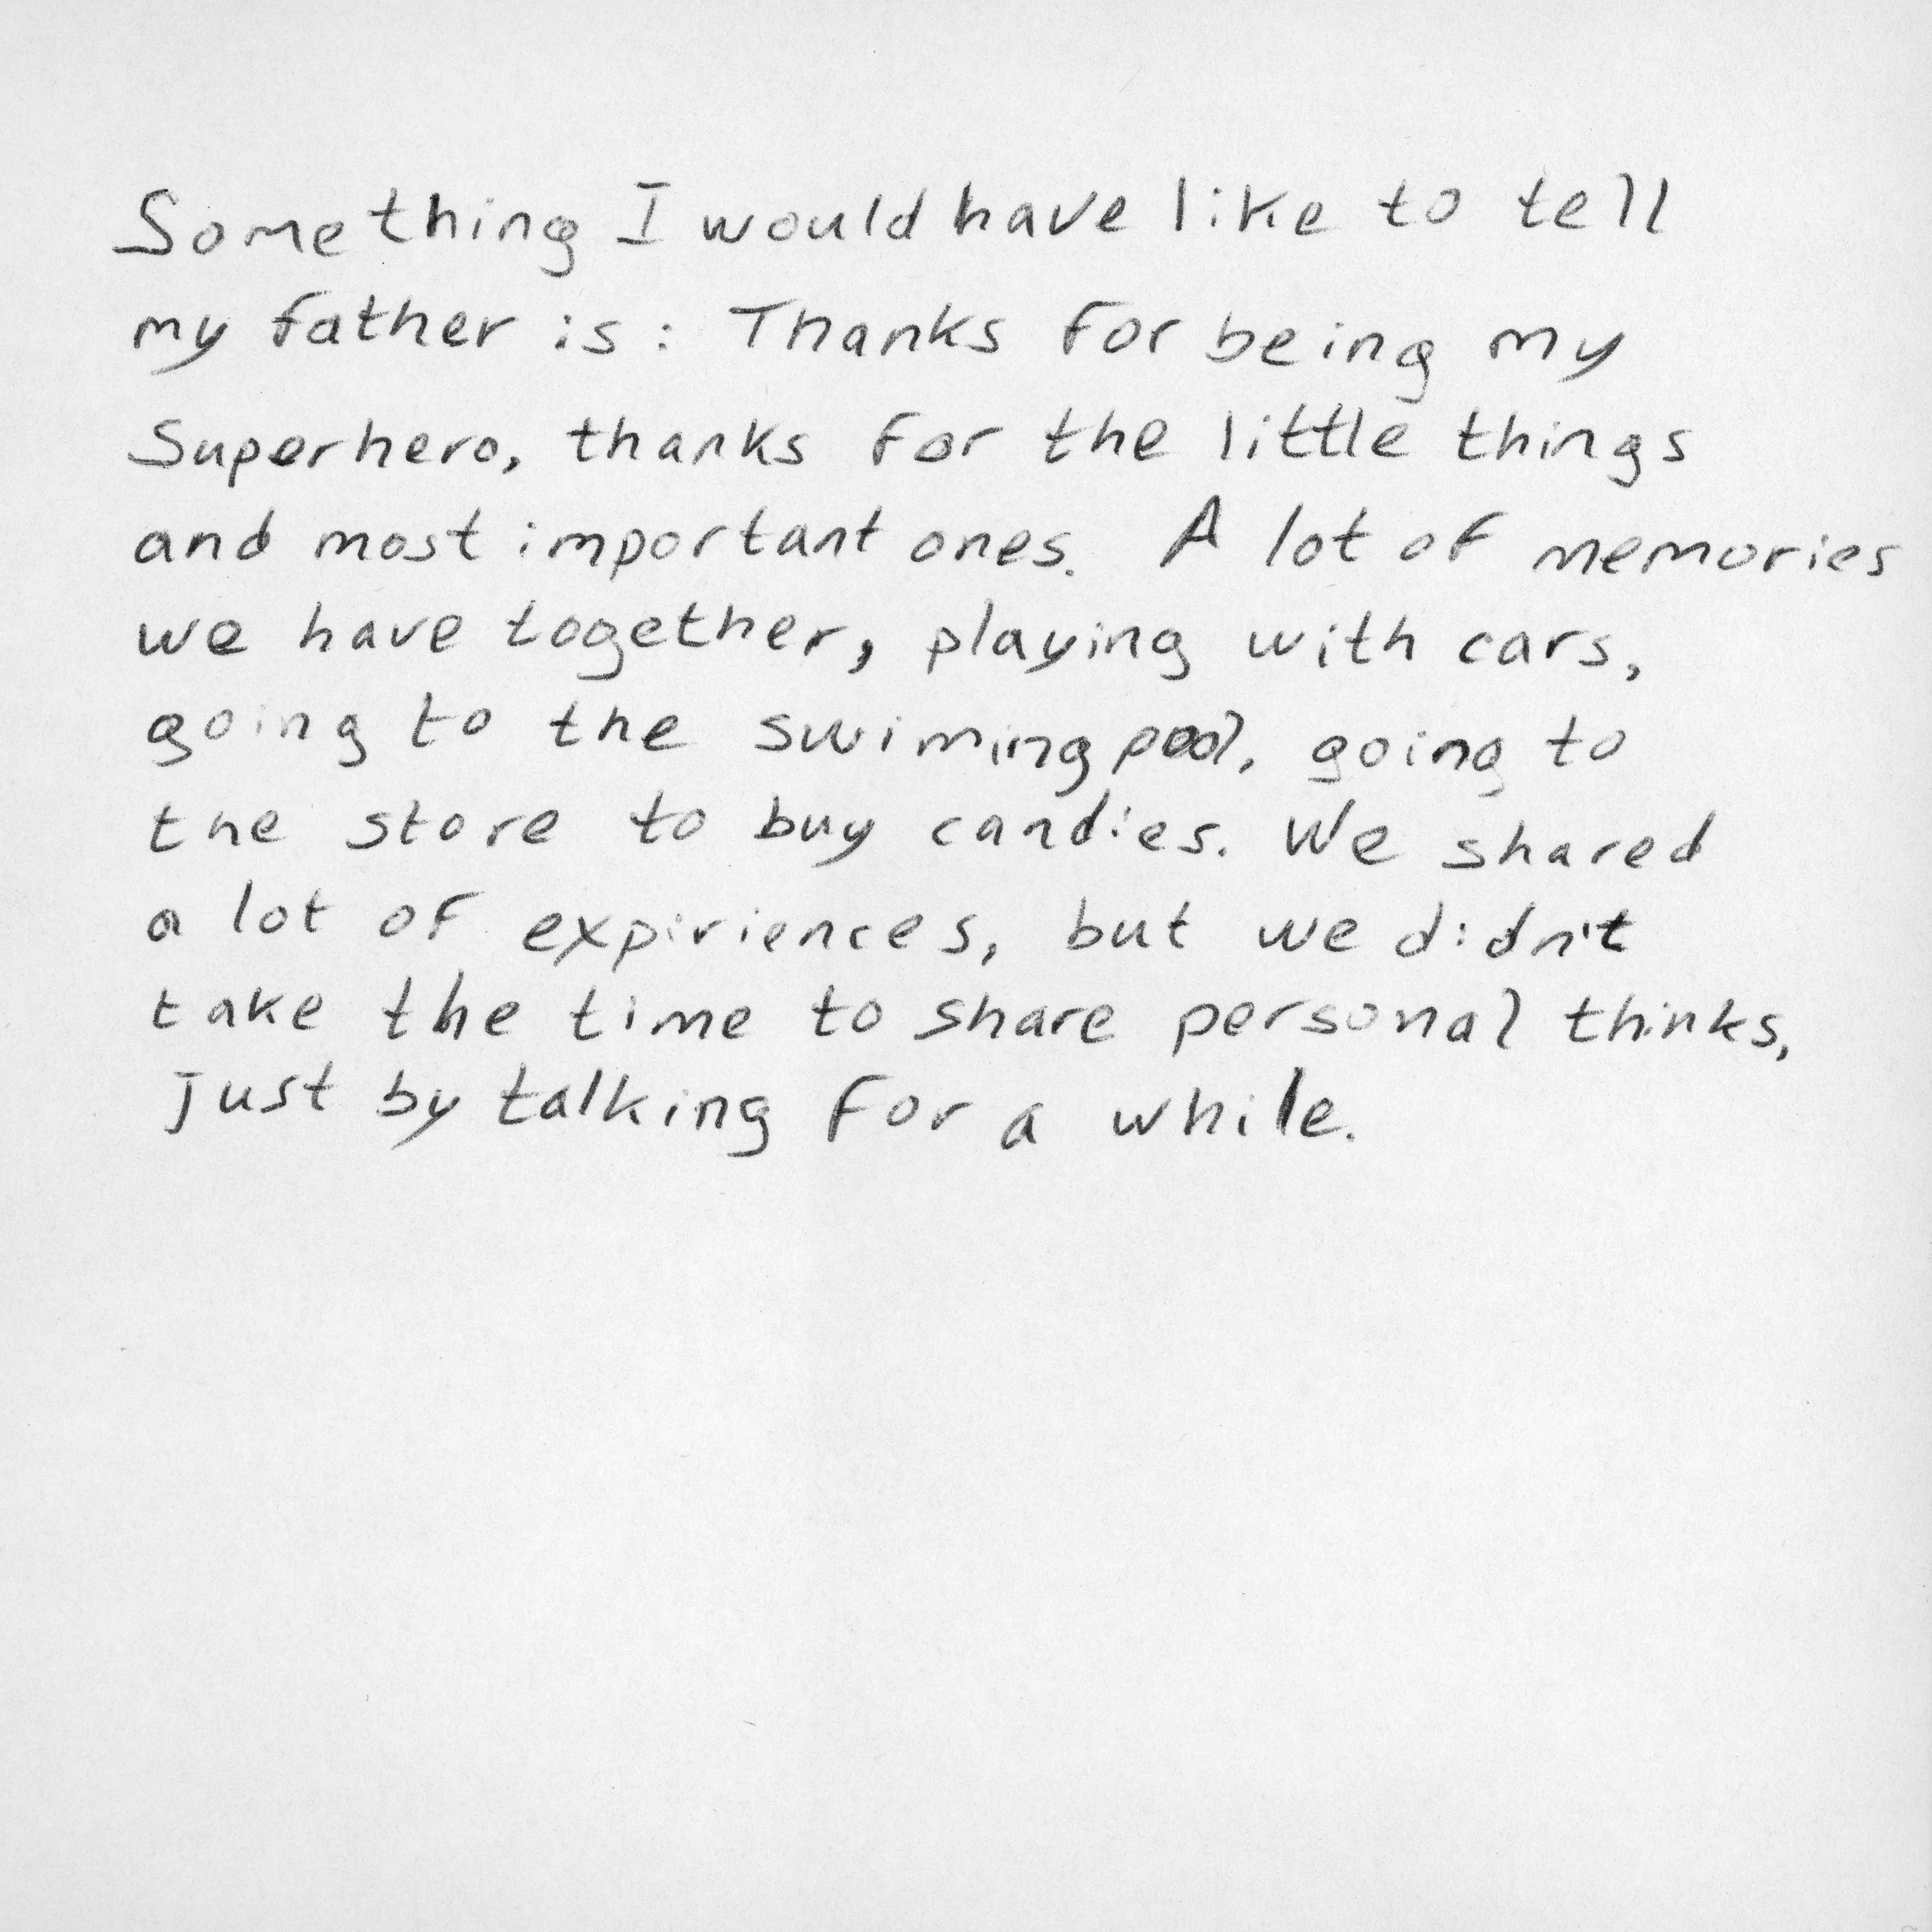 Something I would have like to tell
my father is: Thanks for being my
Superhero, thanks for the little things
and most important ones. A lot of memories
we have together, playing with cars,
going to the swiming pool, going to
the store to buy candies. We shared
a lot of expiriences, but we didn't
take the time to share personal thinks,
just by talking for a while.